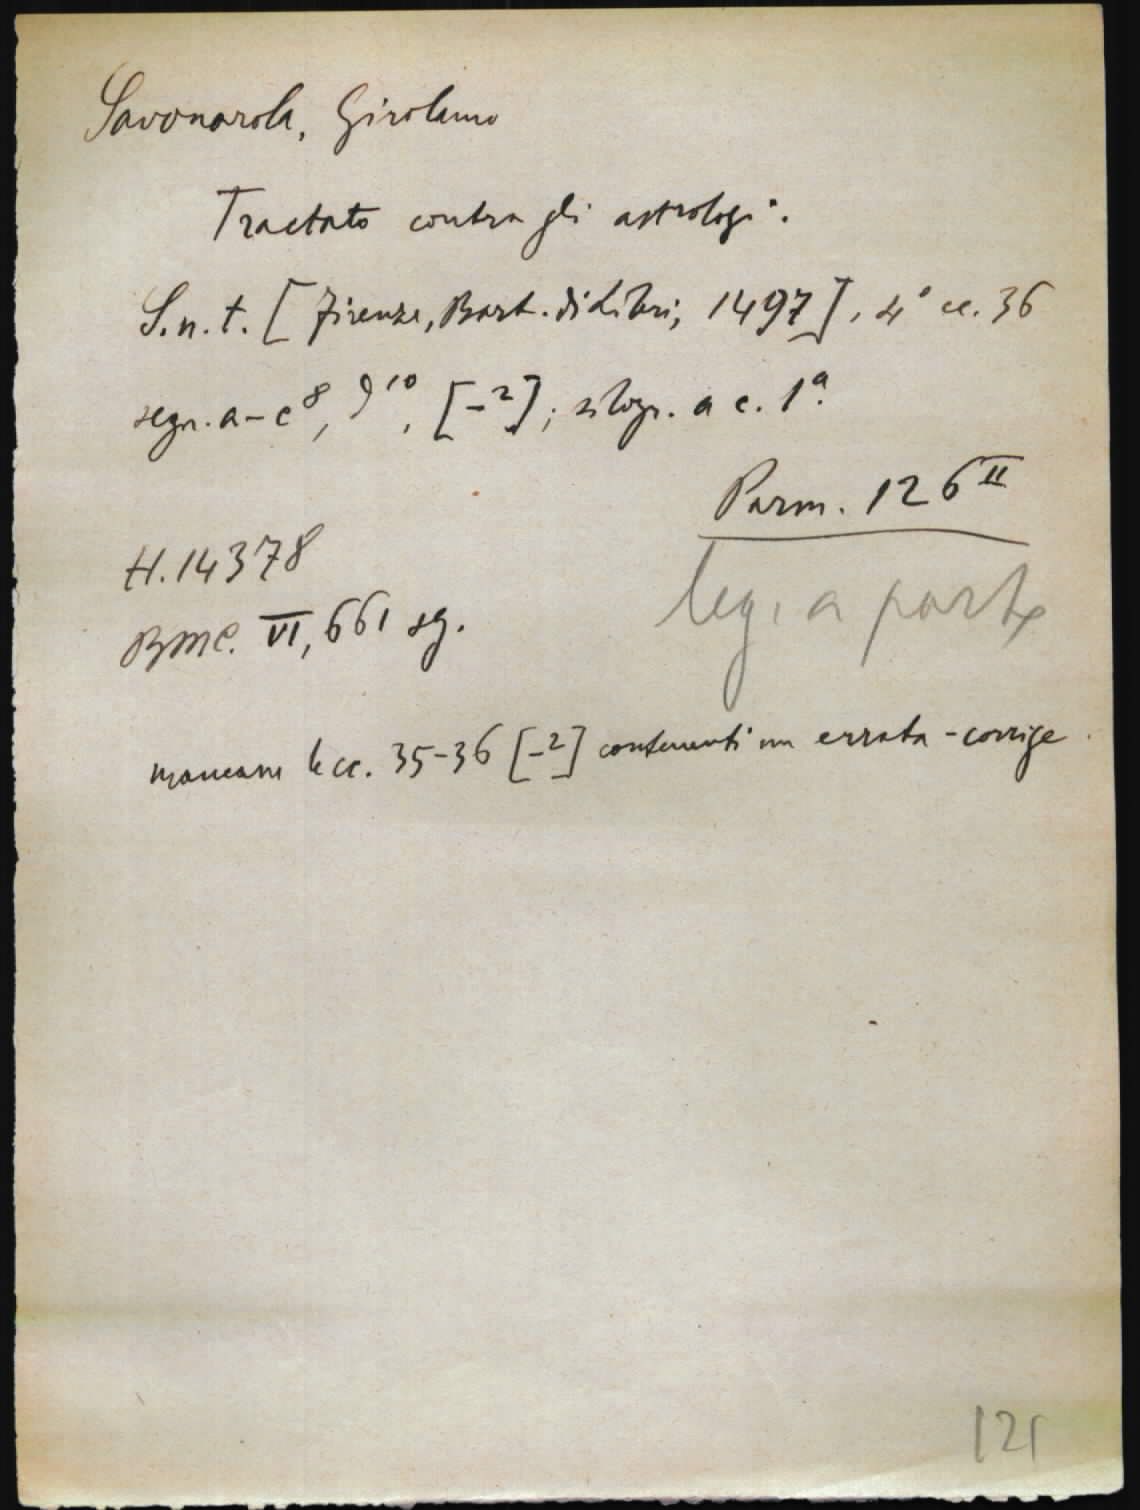 Savonarola, Girolamo
Tractato contra gli astrologi.
S.n.t. [Firenze, Bart. di Libri, 1497], 4° cc. 36
segn. a-c⁸, d¹⁰, [-²]; silogr. a c. 1ª.
Parm. 126 II
leg. a parte
H. 14378
BMC. VI, 661 sg.
mancano le cc. 35-36 [-²] contenenti un errata-corrige.
121